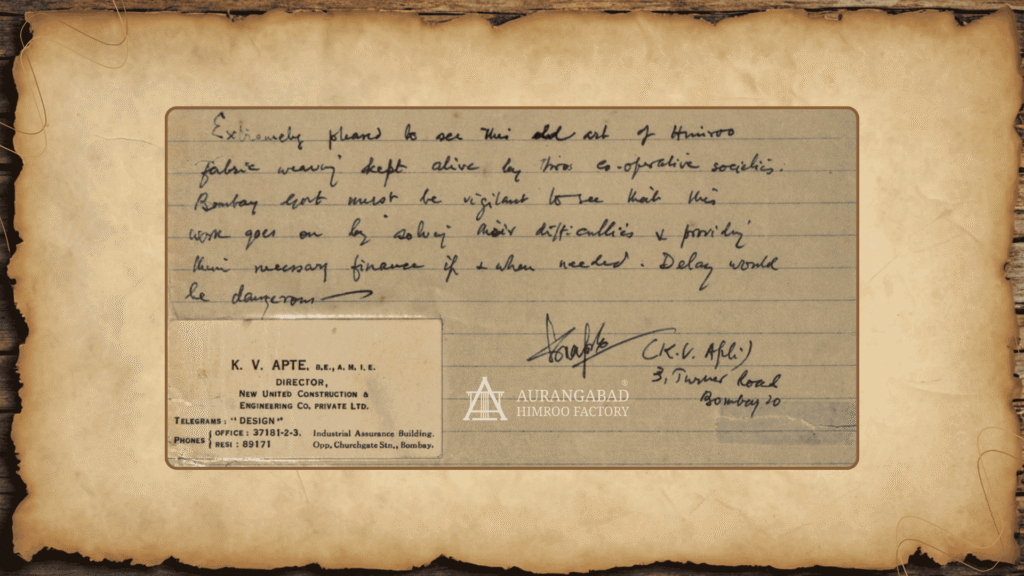 Extremely pleased to see this old art of Himroo
fabric weaving kept alive by two co-operative societies.
Bombay Govt must be vigilant to see that this
work goes on by solving their difficulties & providing
them necessary finance if & when needed. Delay would
be dangerous
(K.V. Apte)
3, Turner Road
Bombay 20
K. V. APTE, B.E., A. M. I. E.
DIRECTOR,
NEW UNITED CONSTRUCTION &
ENGINEERING CO, PRIVATE LTD.
TELEGRAMS : "DESIGN"
PHONES { OFFICE : 37181-2-3.
RESI : 89171
Industrial Assurance Building.
Opp. Churchgate Stn., Bombay.
AURANGABAD®
HIMROO FACTORY